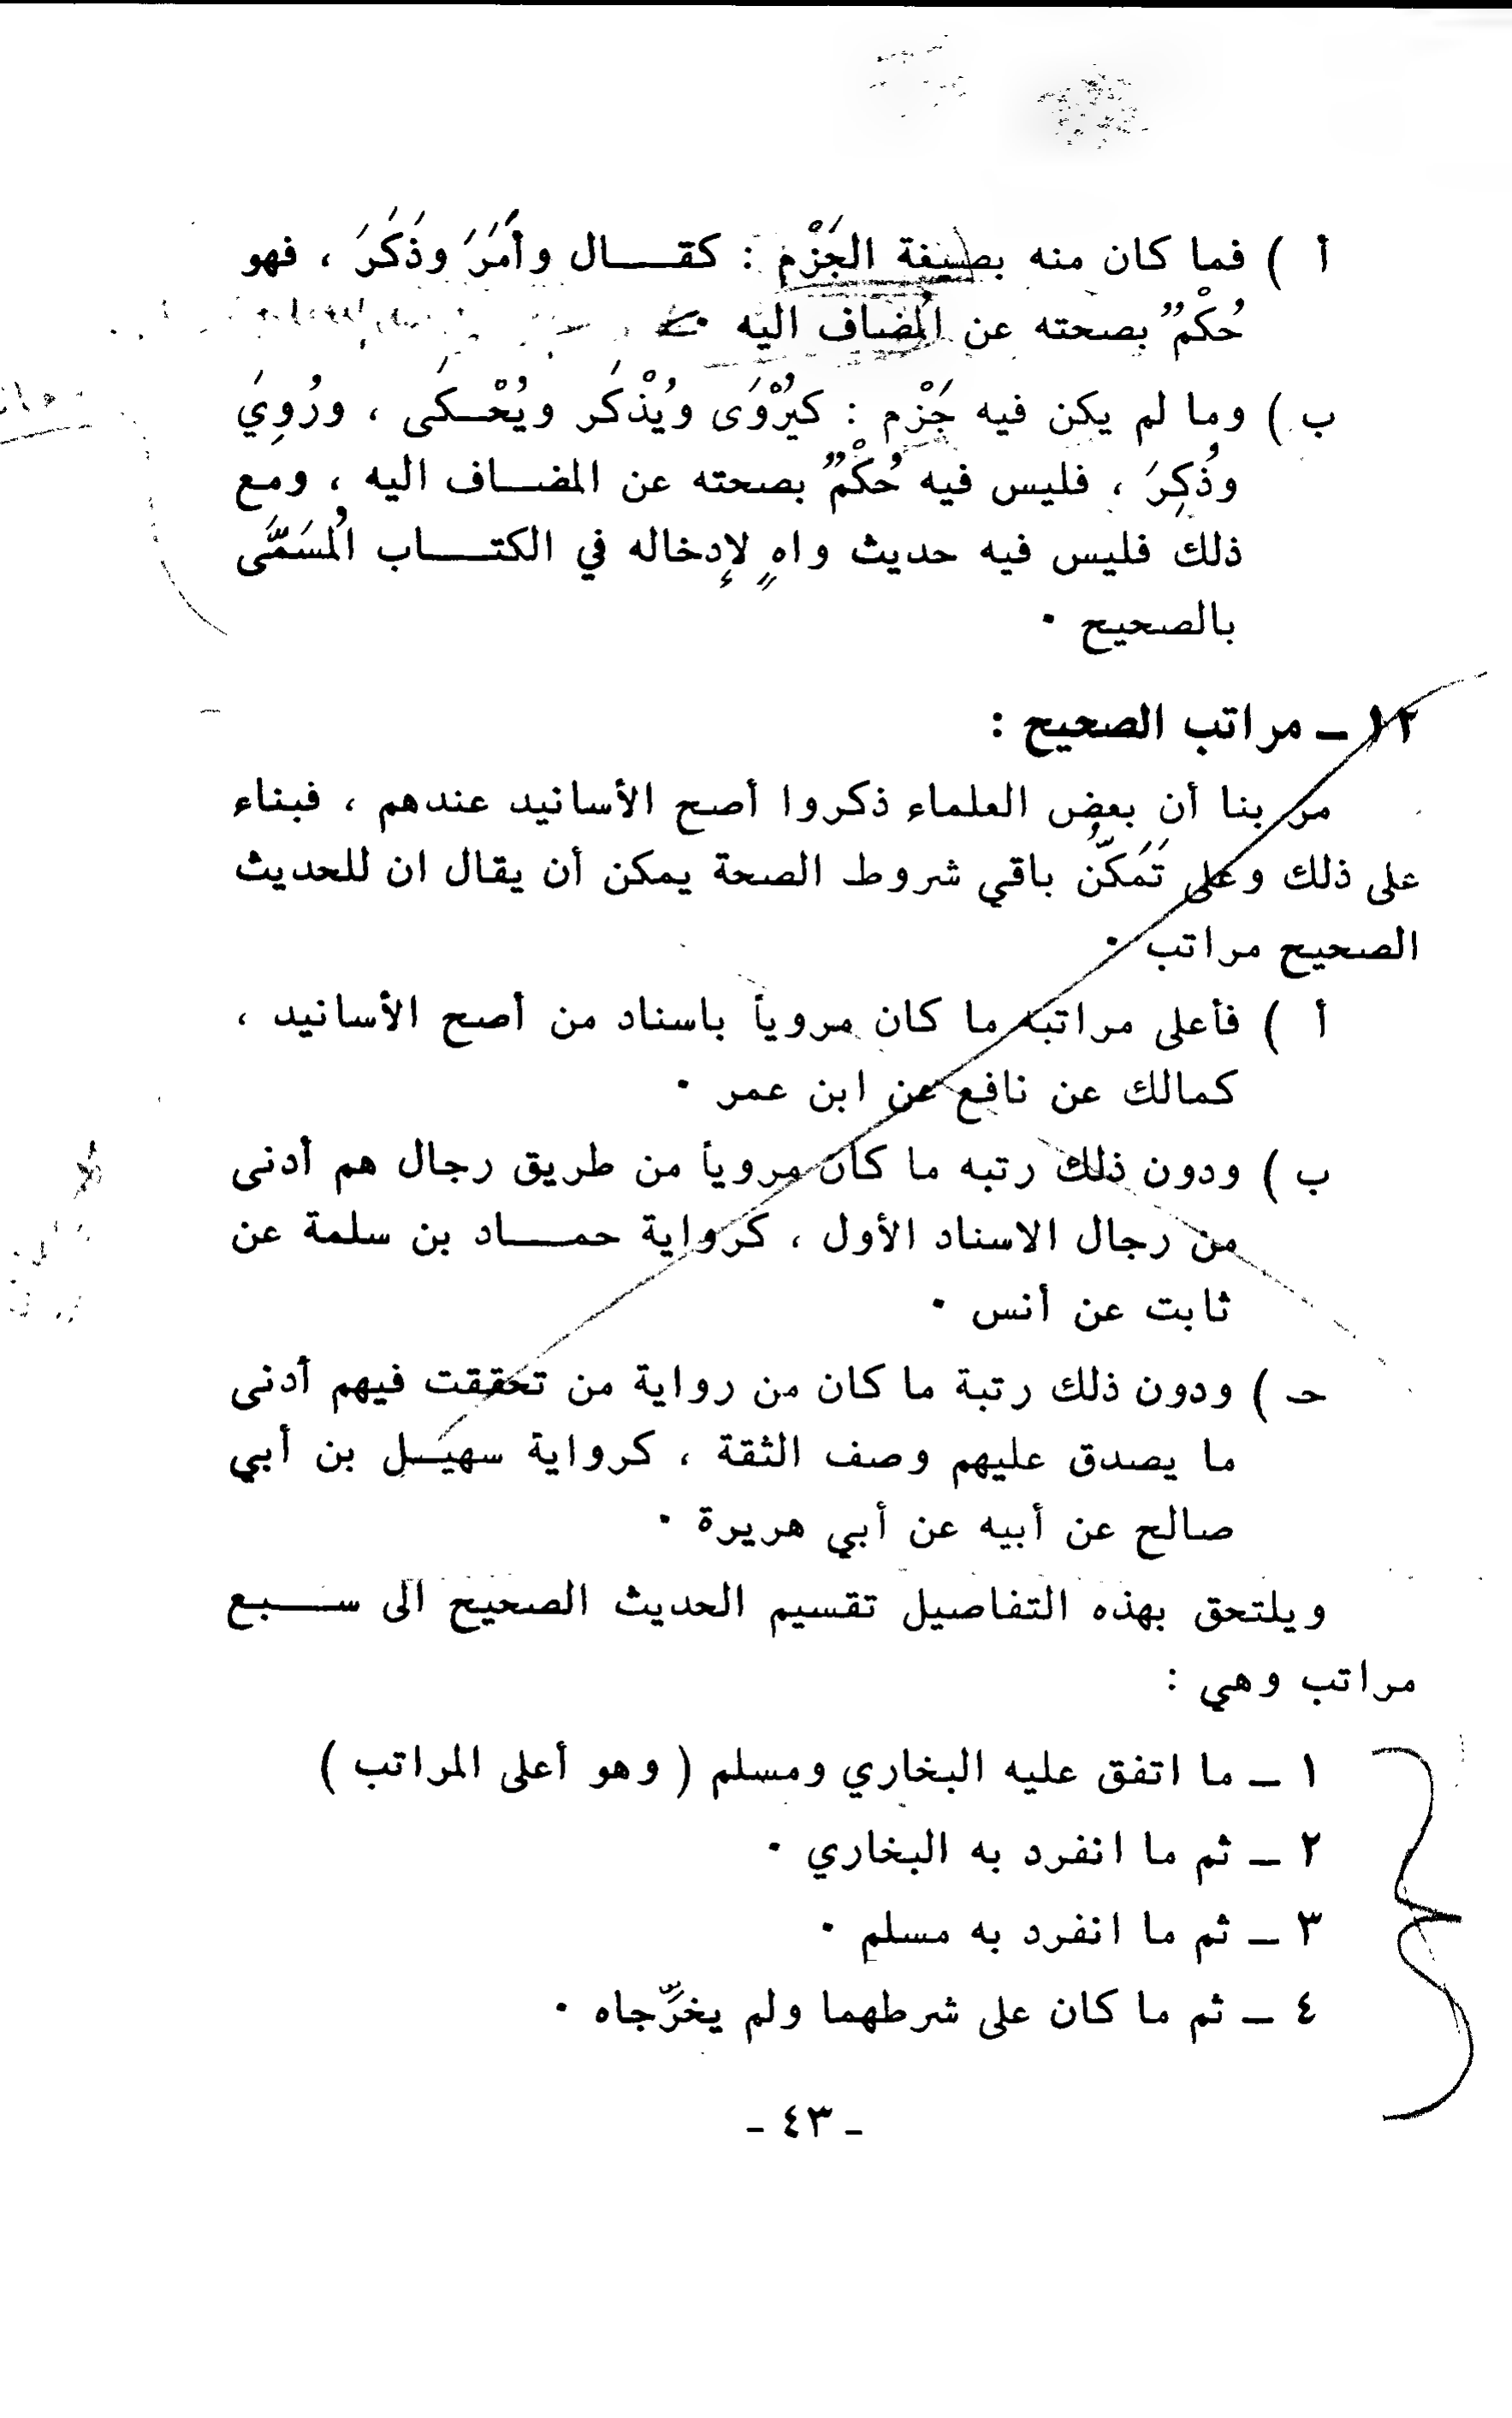 أ ) فما كان منه بصيغة الجَزْمِ : كقـــال وأَمَرَ وذَكَرَ ، فهو
حُكْمٌ بصحته عن المُضاف اليه ٠
ب ) وما لم يكن فيه جَزْم : كيُرْوَى ويُذْكَر ويُحْـكَى ، ورُوِيَ
وذُكِرَ ، فليس فيه حُكْمٌ بصحته عن المضـاف اليه ، ومع
ذلك فليس فيه حديث واهٍ لإِدخاله في الكتـــاب المُسَمَّى
بالصحيح ٠
١٢ ــ مراتب الصحيح :
مر بنا أن بعض العلماء ذكروا أصح الأسانيد عندهم ، فبناء
على ذلك وعلى تَمَكُّن باقي شروط الصحة يمكن أن يقال ان للحديث
الصحيح مراتب ٠
أ ) فأعلى مراتبه ما كان مروياً باسناد من أصح الأسانيد ،
كمالك عن نافع عن ابن عمر ٠
ب ) ودون ذلك رتبه ما كان مروياً من طريق رجال هم أدنى
من رجال الاسناد الأول ، كرواية حمـــاد بن سلمة عن
ثابت عن أنس ٠
حـ ) ودون ذلك رتبة ما كان من رواية من تحققت فيهم أدنى
ما يصدق عليهم وصف الثقة ، كرواية سهيـل بن أبي
صالح عن أبيه عن أبي هريرة ٠
ويلتحق بهذه التفاصيل تقسيم الحديث الصحيح الى ســـبع
مراتب وهي :
١ ــ ما اتفق عليه البخاري ومسلم ( وهو أعلى المراتب )
٢ ــ ثم ما انفرد به البخاري ٠
٣ ــ ثم ما انفرد به مسلم ٠
٤ ــ ثم ما كان على شرطهما ولم يخرِّجاه ٠
ـ ٤٣ ـ